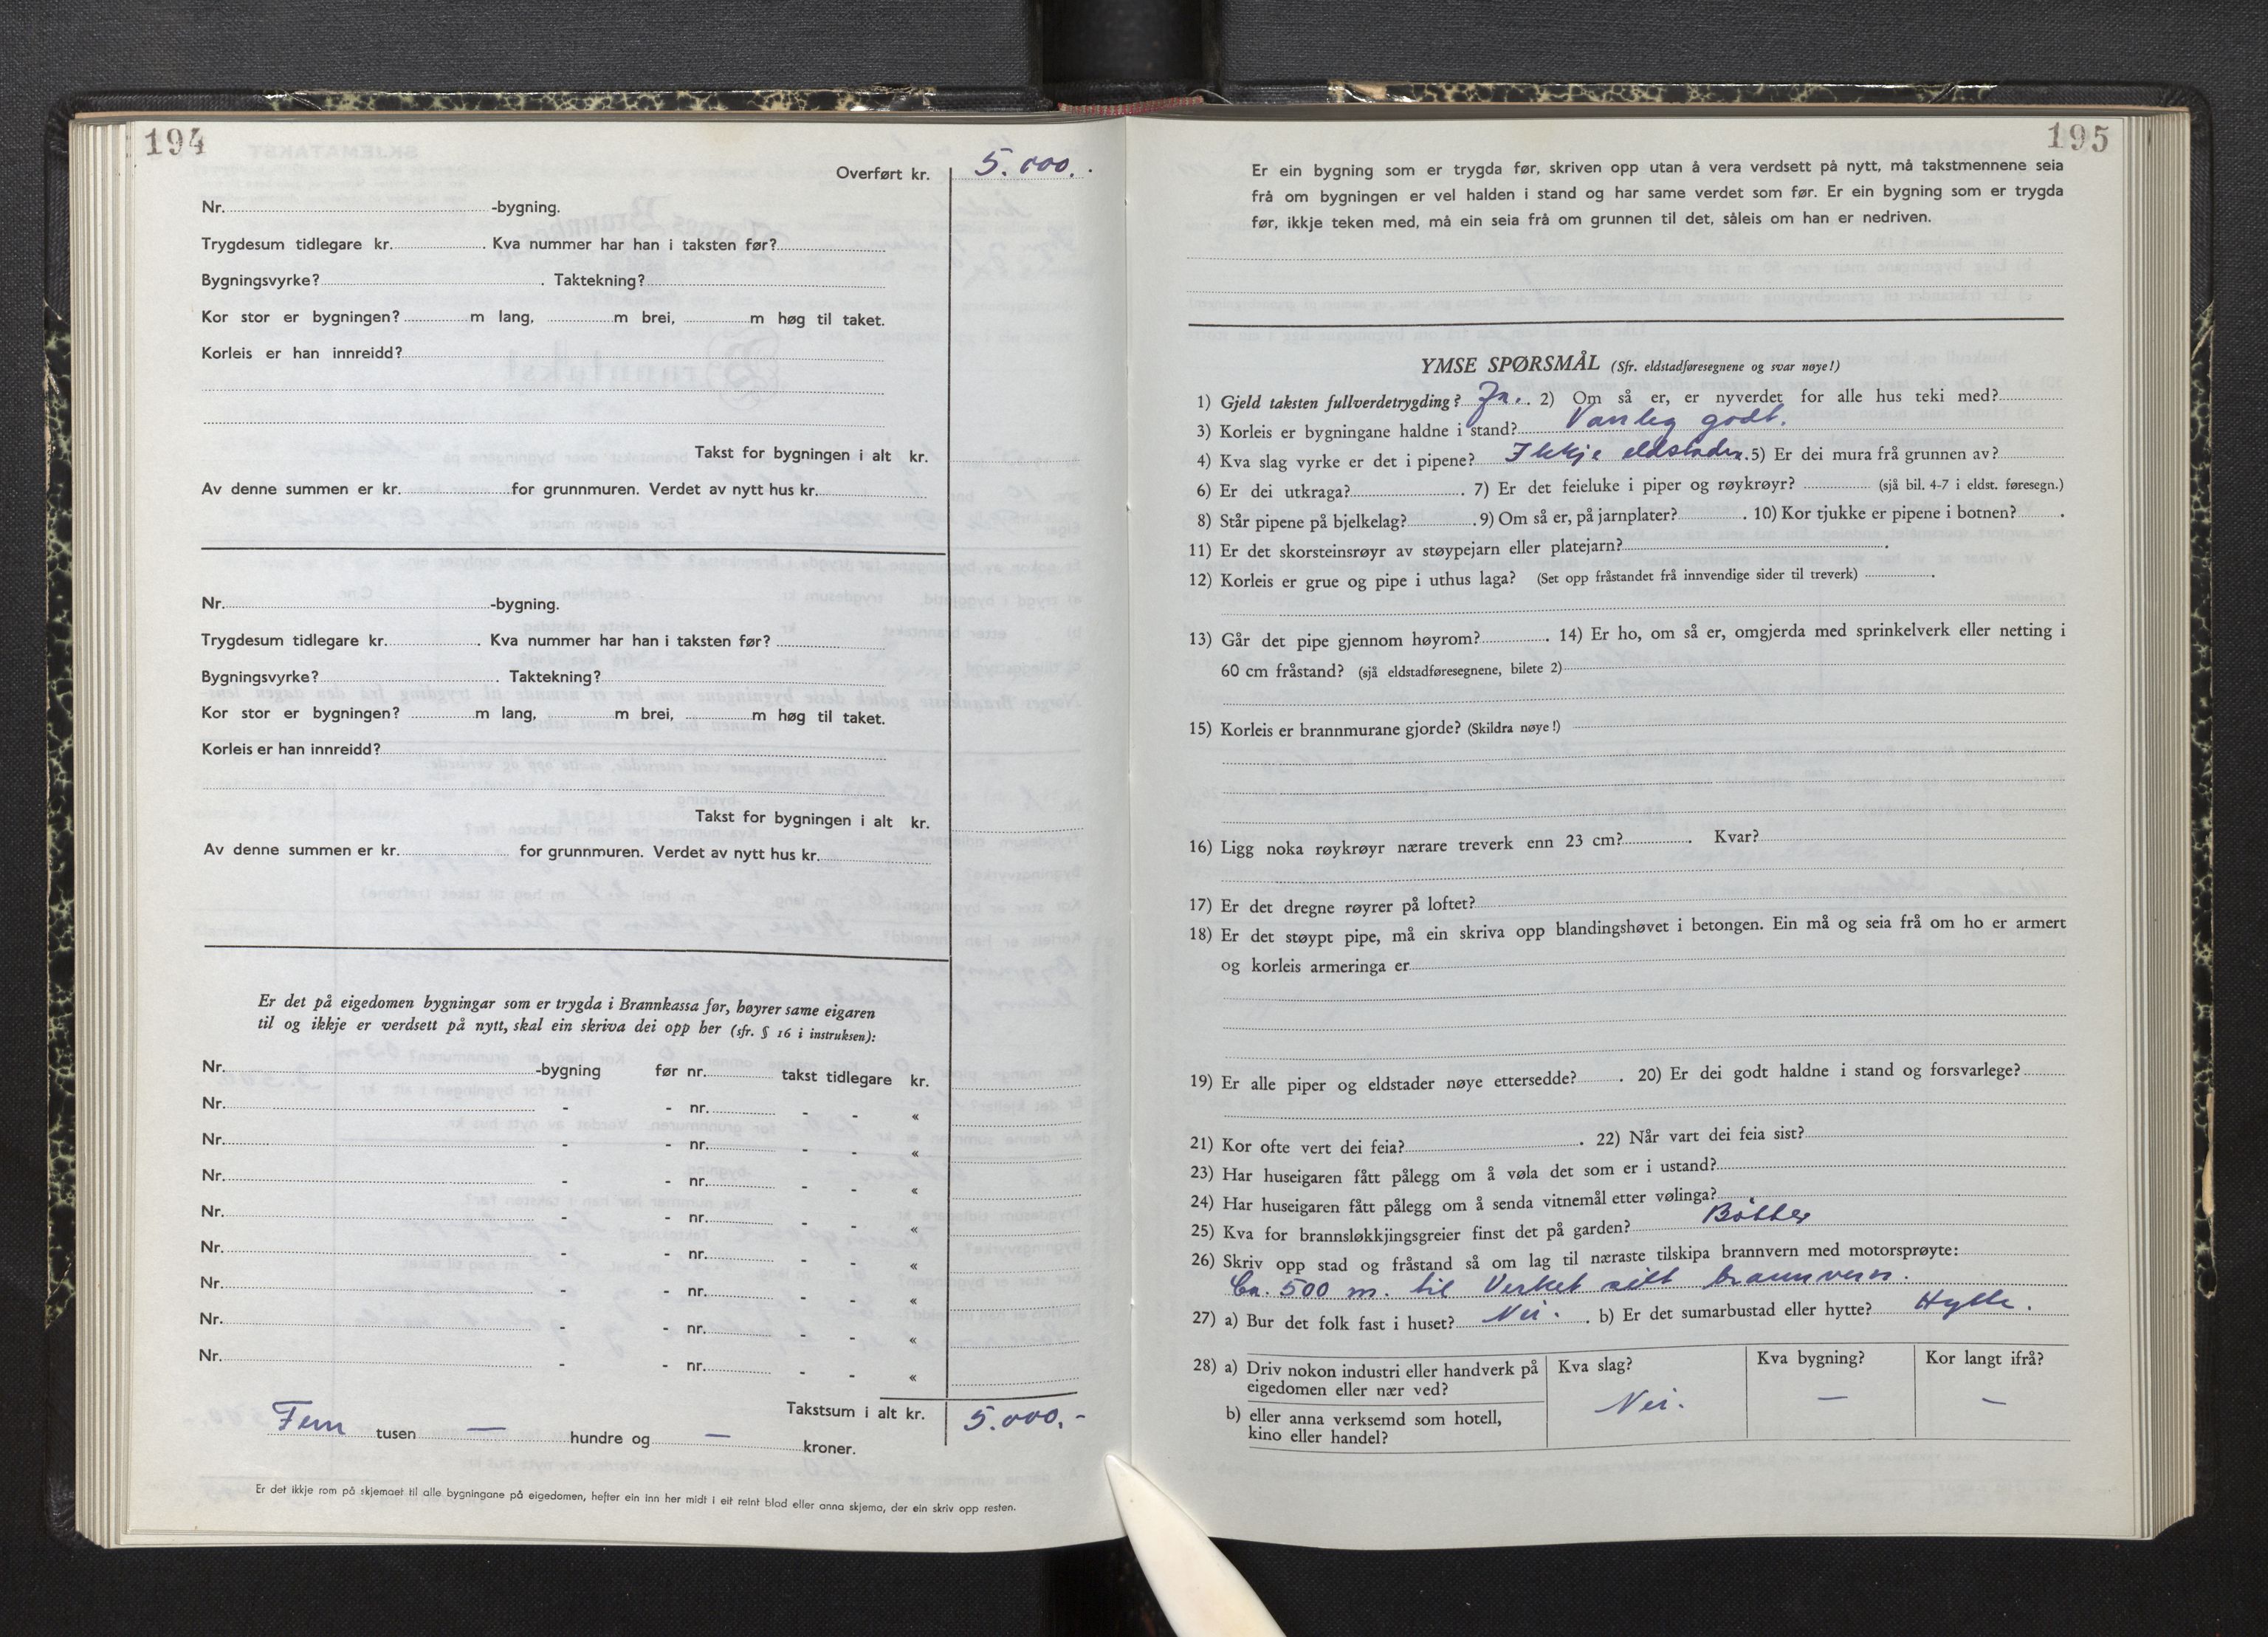 194
Overført kr. 5.000.
Nr. -bygning.
Trygdesum tidlegare kr. . Kva nummer har han i taksten før?
Bygningsvyrke? . Taktekning?
Kor stor er bygningen? m lang, m brei, m høg til taket.
Korleis er han innreidd?
Takst for bygningen i alt kr.
Av denne summen er kr. for grunnmuren. Verdet av nytt hus kr.
Nr. -bygning.
Trygdesum tidlegare kr. . Kva nummer har han i taksten før?
Bygningsvyrke? . Taktekning?
Kor stor er bygningen? m lang, m brei, m høg til taket.
Korleis er han innreidd?
Takst for bygningen i alt kr.
Av denne summen er kr. for grunnmuren. Verdet av nytt hus kr.
Er det på eigedomen bygningar som er trygda i Brannkassa før, høyrer same eigaren
til og ikkje er verdsett på nytt, skal ein skriva dei opp her (sfr. § 16 i instruksen):
Nr. -bygning før nr. takst tidlegare kr.
Nr. - - nr. - - «
Nr. - - nr. - - «
Nr. - - nr. - - «
Nr. - - nr. - - «
Nr. - - nr. - - «
Nr. - - nr. - - «
Nr. - - nr. - - «
Nr. - - nr. - - «
Takstsum i alt kr. 5.000,-
Fem tusen — hundre og — kroner.
Er det ikkje rom på skjemaet til alle bygningane på eigedomen, hefter ein inn her midt i eit reint blad eller anna skjema, der ein skriv opp resten.
195
Er ein bygning som er trygda før, skriven opp utan å vera verdsett på nytt, må takstmennene seia
frå om bygningen er vel halden i stand og har same verdet som før. Er ein bygning som er trygda
før, ikkje teken med, må ein seia frå om grunnen til det, såleis om han er nedriven.
YMSE SPØRSMÅL (Sfr. eldstadføresegnene og svar nøye!)
1) Gjeld taksten fullverdetrygding? Ja. 2) Om så er, er nyverdet for alle hus teki med?
3) Korleis er bygningane haldne i stand? Vanleg godt.
4) Kva slag vyrke er det i pipene? Ikkje eldstader. 5) Er dei mura frå grunnen av?
6) Er dei utkraga? . 7) Er det feieluke i piper og røykrøyr? (sjå bil. 4-7 i eldst. føresegn.)
8) Står pipene på bjelkelag? . 9) Om så er, på jarnplater? . 10) Kor tjukke er pipene i botnen? .
11) Er det skorsteinsrøyr av støypejarn eller platejarn? .
12) Korleis er grue og pipe i uthus laga? (Set opp fråstandet frå innvendige sider til treverk) .
13) Går det pipe gjennom høyrom? . 14) Er ho, om så er, omgjerda med sprinkelverk eller netting i
60 cm fråstand? (sjå eldstadføresegnene, bilete 2)
15) Korleis er brannmurane gjorde? (Skildra nøye!)
16) Ligg noka røykrøyr nærare treverk enn 23 cm? . Kvar?
17) Er det dregne røyrer på loftet?
18) Er det støypt pipe, må ein skriva opp blandingshøvet i betongen. Ein må og seia frå om ho er armert
og korleis armeringa er
19) Er alle piper og eldstader nøye ettersedde? . 20) Er dei godt haldne i stand og forsvarlege?
21) Kor ofte vert dei feia? . 22) Når vart dei feia sist?
23) Har huseigaren fått pålegg om å vøla det som er i ustand?
24) Har huseigaren fått pålegg om å senda vitnemål etter vølinga?
25) Kva for brannsløkkjingsgreier finst det på garden? Bøtter
26) Skriv opp stad og fråstand så om lag til næraste tilskipa brannvern med motorsprøyte:
Ca. 500 m. til Verket sitt brannvern.
27) a) Bur det folk fast i huset? Nei. . b) Er det sumarbustad eller hytte? Hytte.
28) a) Driv nokon industri eller handverk på Kva slag? Kva bygning? Kor langt ifrå?
eigedomen eller nær ved?
Nei. — —
b) eller anna verksemd som hotell,
kino eller handel?